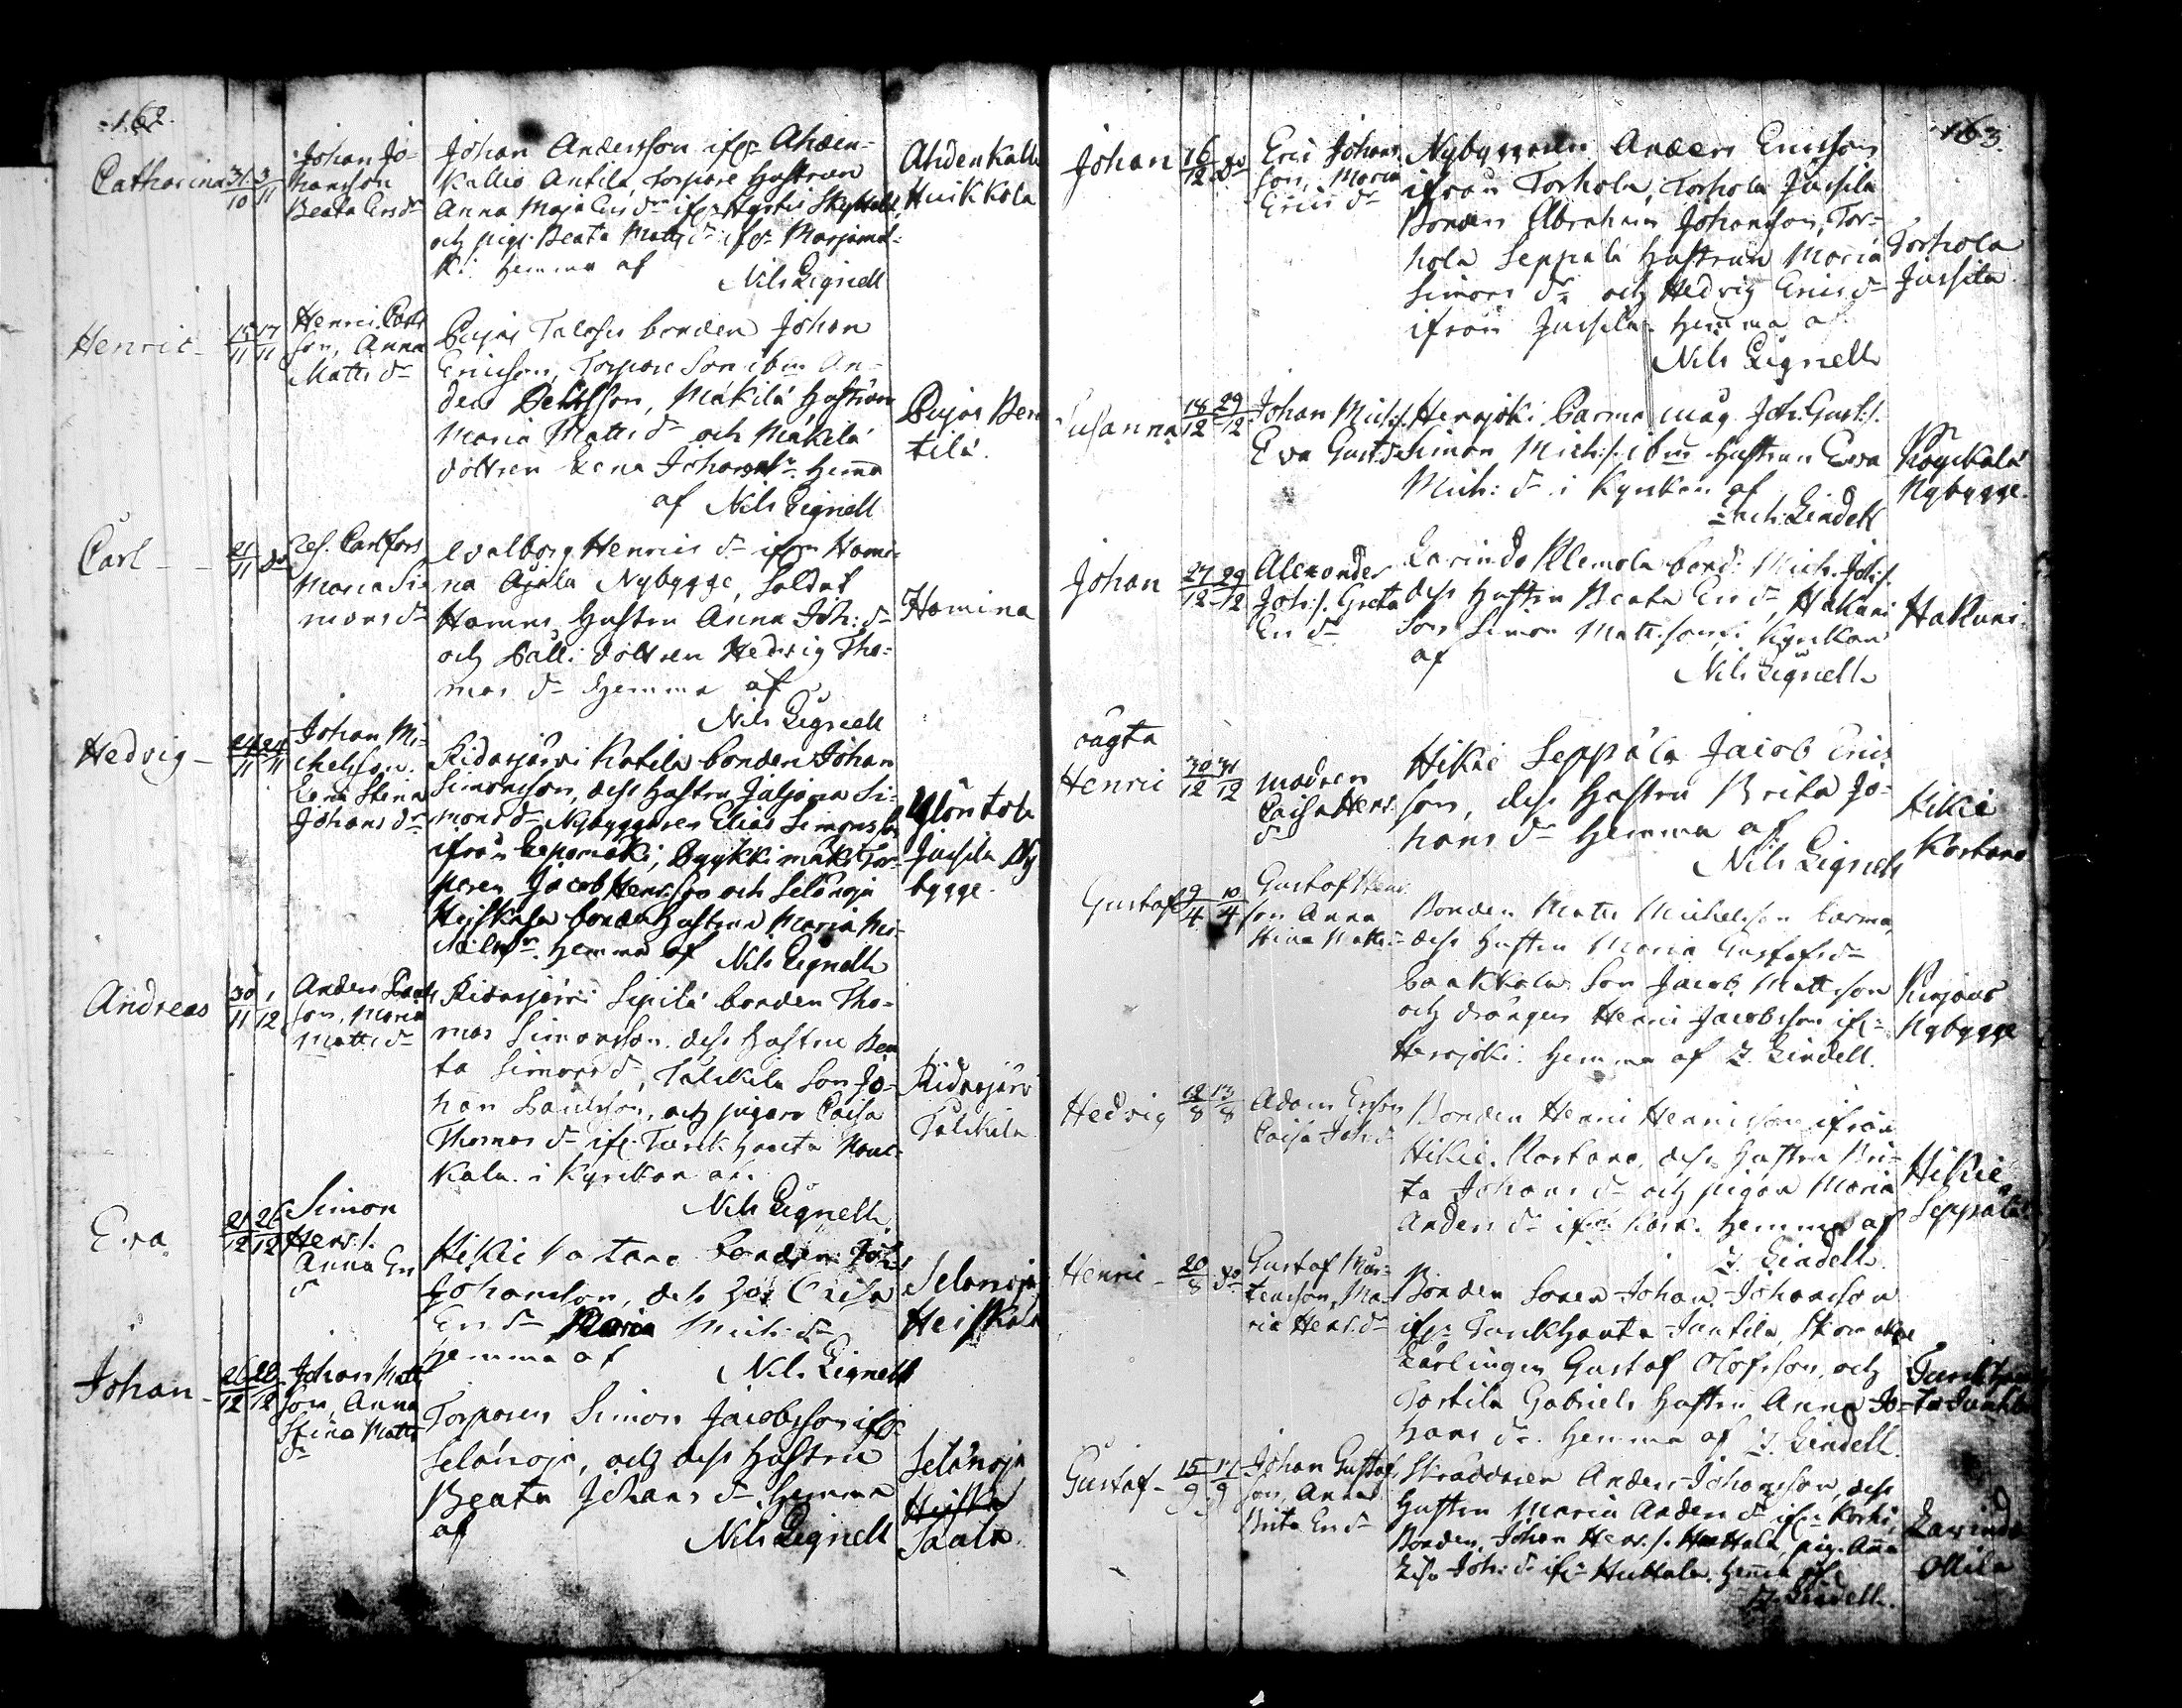 162.
Catharina 31/10 3/11
Johan Jo=
hansson
Beata Ersdr
Johan Andersson ifr. Ahden=
kallio Antila, Torpare Hustrun
Anna Maja Ersdr ifr.
och pig. Beata Mattsdr ifr. Marjamä=
ki. Hemma af
Nils Lignell
Ahdenkallio
Huikkola
Henric - 15/11 17/11
Henric Carls
son, Anna
Mattsdr
Pujas Talosis bonden Johan
Ericsson, Torpare Son ibm An=
ders Bentsson, Mäkilä Hustrun
Maria Mattsdr och Mäkilä
dottren Lena Johansdr. Hema
af Nils Lignell
Pujas Ben
tilä.
Carl - - 21/11 do
Carlfors,
Maria Si=
monsdr
Valborg Henricsdr ifrn Homi=
na Ojala Nybygge, Soldat
Hustru Anna Joh:dr
och Pälli dottren Hedvig Tho=
mas dr Hemma af
Nils Lignell
Homina
Hedvig - 24/11 24/11
Johan Mi=
chelsson.
Lena Stina
Johansdr
Ridasjärvi Katila bonden Johan
Simonsson, dess Hustru Juljana Si=
monsdr Nybyggaren Elias Simonsson
ifrån Leponiski, Pyykkimäki Tor=
paren Jacob Henricsson och Selänoja
Heiskala bonde Hustrun Maria Mi=
chelsdr. Hemma af Nils Lignell
Ylöntola
Jussila Ny
bygge.
Andreas 30/11 1/12
Anders Pauls
son, Maria
Mattsdr
Ridasjärvi Sipilä bonden Tho=
mas Simonsson, dess Hustru Bea
ta Simonsdr, Talskila Son Jo=
han Paulsson, och pigan Caisa
Thomasdr ifr. Turkhauta Nouc=
kala. i Kyrckan af.
Nils Lignell
Ridasjärvi
Talskila
Eva 21/12 26/12
Simon
Henr:s.
Anna Er
dr
Hikie Kortano Bonden Joh.
Johansson, dess Caisa
Ersdr Maria Mich:dr
Hemma af
Nils Lignell
Selänoja
Heiskala
Johan - 26/12 28/12
Johan Matts
son, Anna
Stina Matts
dr
Torparen Simon Jacobsson ifr.
Selänoja, och dess Hustru
Beata Johansdr Hemma
af
Nils Lignell
Selänoja
Heiska
Saala.
163.
Johan 16/12 do
Eric Johans
son, Maria
Ericsdr
Nybyggaren Anders Ericsson
ifrån Torhola; Torhola Jussila
Bonden Abraham Johansson, Tor=
hola Seppälä Hustrun Maria
Simonsdr och Hedvig Ericsdr
ifrån Jussila. Hemma af
Nils Lignell
Torhola
Jussila
Susanna 18/12 29/12
Johan Mich:s.
Eva Gust:dr
Hersjoki Parma måg Joh: Gust:s.
Simon Mich:s. ibm Hustrun Eva
Mich:dr. i Kyrkan af
Zach: Lindell
Nybygge.
Johan 27/12 29/12
Alexander
Joh:s. Greta
Ersdr
Lavinda Klemola bond. Mich. Joh:s.
dess Hustru Beata Ersdr, Hakuni
Son Simon Matts:son i Kyrkan
af
Nils Lignell
Hakuni.
oägta
Henric 30/12 31/12
modren
Caisa Henr.
dr
Hikie Seppälä Jacob Eric
son, dess Hustru Brita Jo=
hansdr Hemma af
Nils Lignell
Hikie
Kortano
Gustaf 9/4 10/4
Gustaf Henr.
son Anna
Stina Mattsdr
Bonden Matts Michelsson Parma,
dess Hustru Maria Gustafsdr
Paakkola Son Jacob Mattsson
och drängen Henric Jacobsson ifr.
Hersjoki. Hemma af Z. Lindell.
Nybygge
Hedvig 12/8 13/8
Adam Ersson
Caisa Joh:dr
Bonden Henric Henricsson ifrån
Hikie. Kortano, dess Hustru Bri=
ta Johansdr och pigan Maria
Andersdr ifr. Hemma af
Z. Lindell.
Hikie
Seppälä
Henric - 20/8 do
Gustaf Mår=
tensson, Ma=
ria Henr:dr
Bonden Sonen Johan Johansson
ifr. Turkhauta Juntila, Skomakare
Lärlingen Gustaf Olofsson, och
Tortila Gabriels Hustru Anna Jo=
hansdr. Hemma af Z. Lindell.
Turkhau
ta Juntila
Gustaf - 15/9 17/9
Johan Gustaf
son, Anna
Brita Ersdr
Skräddaren Anders Johansson, dess
Hustru Maria Andersdr ifr. Korki,
Bonden Johan Henr:s. Huttala, pig. Anna
Lisa Joh:dr ifr. Huttala. Hema af
Z. Lindell.
Lavinda
Ollila